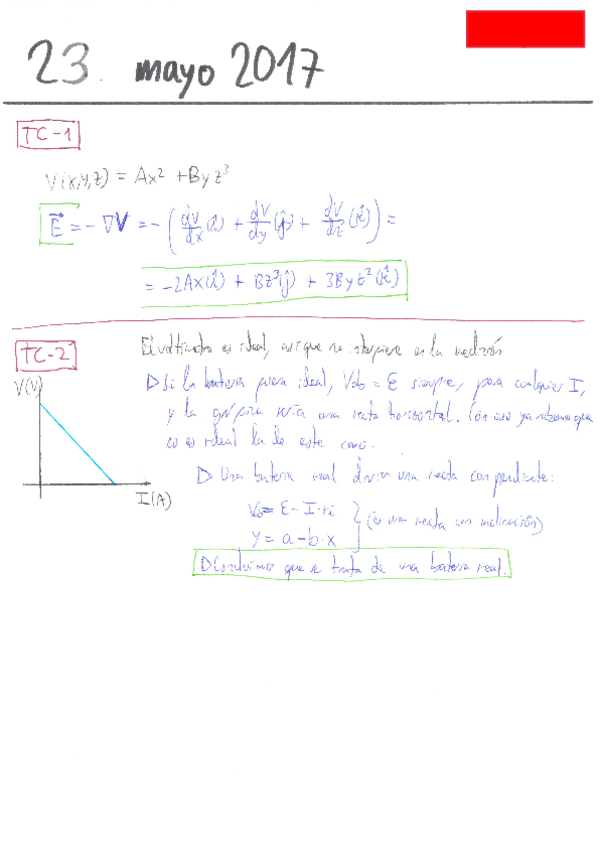 23. mayo 2017
TC-1
V(x,y,z) = Ax² + Byz³
E⃗ = -∇V = -(dV/dx (î) + dV/dy (ĵ) + dV/dz (k̂)) =
= -2Ax(î) + Bz³(ĵ) + 3Byz²(k̂)
TC-2
El voltímetro es ideal, así que no interfiere en la medición
V(V)
I(A)
▷ Si la batería fuera ideal, Vab = ε siempre, para cualquier I,
y la gráfica sería una recta horizontal. Con eso ya sabemos que
no es ideal la de este caso.
▷ Una batería real daría una recta con pendiente:
Vab = ε - I·ri
y = a - b·x
(es una recta con inclinación)
▷ Concluimos que se trata de una batería real.